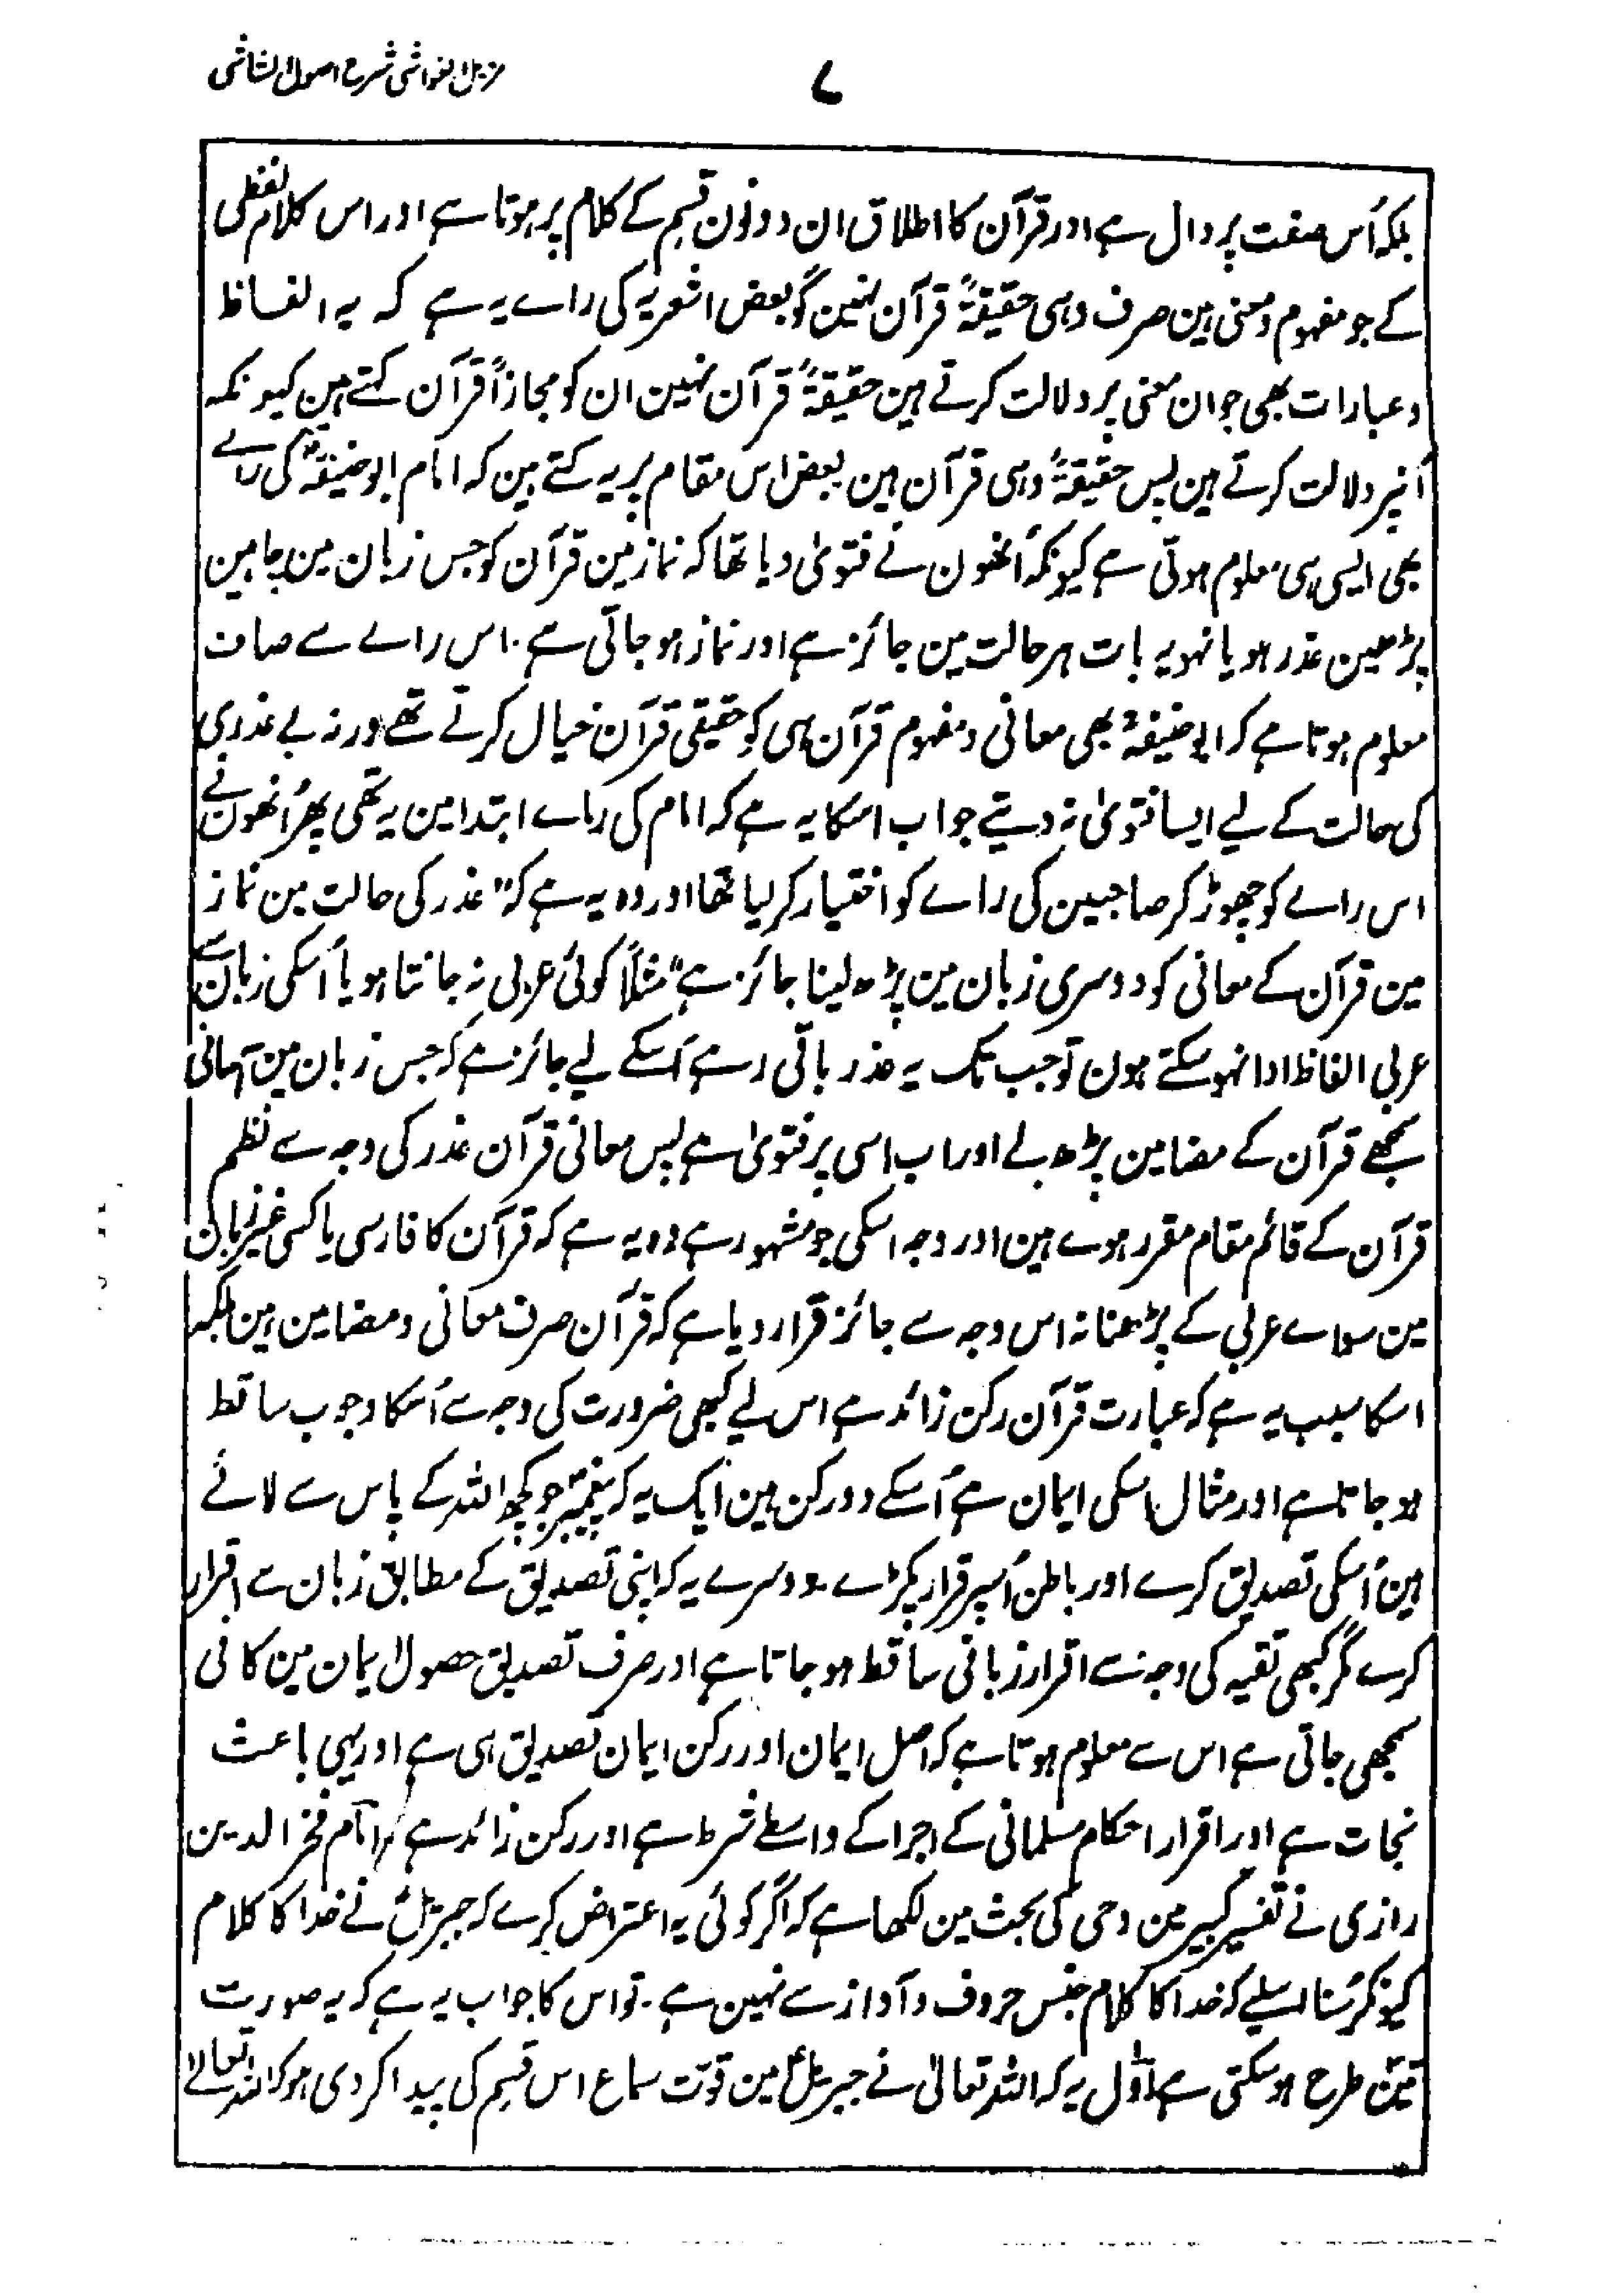 مزیل الغواشی شرح اصول الشاشی
۷
بلکہ اُس صفت پر دال ہے اور قرآن کا اطلاق ان دونون قسم کے کلام پر ہوتا ہے اور اس کلام لفظی
کے جو مفہوم و معنی ہین صرف وہی حقیقۃً قرآن نہین گو بعض اشعریہ کی راے یہ ہے کہ یہ الفاظ
و عبارات بھی جو ان معنی پر دلالت کرتے ہین حقیقۃً قرآن نہین ان کو مجازاً قرآن کہتے ہین کیونکہ
اُنپر دلالت کرتے ہین پس حقیقۃً وہی قرآن ہین بعض اس مقام پر یہ کہتے ہین کہ امام ابو حنیفہؒ کی راے
بھی ایسی ہی معلوم ہوتی ہے کیونکہ اُنھون نے فتویٰ دیا تھا کہ نماز مین قرآن کو جس زبان مین چاہین
پڑھین عذر ہو یا نہو یہ بات ہر حالت مین جائز ہے اور نماز ہو جاتی ہے۔ اس راے سے صاف
معلوم ہوتا ہے کہ ابو حنیفہؒ بھی معانی و مفہوم قرآن ہی کو حقیقی قرآن خیال کرتے تھے ورنہ بے عذری
کی حالت کے لیے ایسا فتویٰ نہ دیتے جواب اسکا یہ ہے کہ امام کی راے ابتدا مین یہ تھی پھر اُنھون نے
اس راے کو چھوڑ کر صاحبین کی راے کو اختیار کر لیا تھا اور وہ یہ ہے کہ "عذر کی حالت مین نماز
مین قرآن کے معانی کو دوسری زبان مین پڑھ لینا جائز ہے" مثلاً کوئی عربی نہ جانتا ہو یا اُسکی زبان سے
عربی الفاظ ادا نہو سکتے ہون تو جب تک یہ عذر باقی رہے اُسکے لیے جائز ہے کہ جس زبان مین آسانی
سمجھے قرآن کے مضامین پڑھ لے اور اب اسی پر فتویٰ ہے پس معانی قرآن عذر کی وجہ سے نظم
قرآن کے قائم مقام مقرر ہوے ہین اور وجہ اسکی جو مشہور ہے وہ یہ ہے کہ قرآن کا فارسی یا کسی غیر زبان
مین سواے عربی کے پڑھنا نہ اس وجہ سے جائز قرار دیا ہے کہ قرآن صرف معانی و مضامین ہین بلکہ
اسکا سبب یہ ہے کہ عبارت قرآن رکن زائد ہے اس لیے کبھی ضرورت کی وجہ سے اُسکا وجوب ساقط
ہو جاتا ہے اور مثال اسکی ایمان ہے اُسکے دو رکن ہین ایک یہ کہ پیغمبر جو کچھ اللہ کے پاس سے لائے
ہین اُسکی تصدیق کرے اور باطن اُسپر قرار پکڑے۔ دوسرے یہ کہ اپنی تصدیق کے مطابق زبان سے اقرار
کرے مگر کبھی تقیہ کی وجہ سے اقرار زبانی ساقط ہو جاتا ہے اور صرف تصدیق حصول ایمان مین کافی
سمجھی جاتی ہے اس سے معلوم ہوتا ہے کہ اصل ایمان اور رکن ایمان تصدیق ہی ہے اور یہی باعث
نجات ہے اور اقرار احکام مسلمانی کے اجرا کے واسطے شرط ہے اور رکن زائد ہے امام فخر الدین
رازی نے تفسیر کبیر مین وحی کی بحث مین لکھا ہے کہ اگر کوئی یہ اعتراض کرے کہ جبرئیلؑ نے خدا کا کلام
کیونکر سُنا اسلیے کہ خدا کا کلام جنس حروف و آواز سے نہین ہے۔ تو اس کا جواب یہ ہے کہ یہ صورت
تین طرح ہو سکتی ہے اوّل یہ کہ اللہ تعالیٰ نے جبرئیلؑ مین قوّت سماع اس قسم کی پیدا کر دی ہو کہ اللہ تعالے